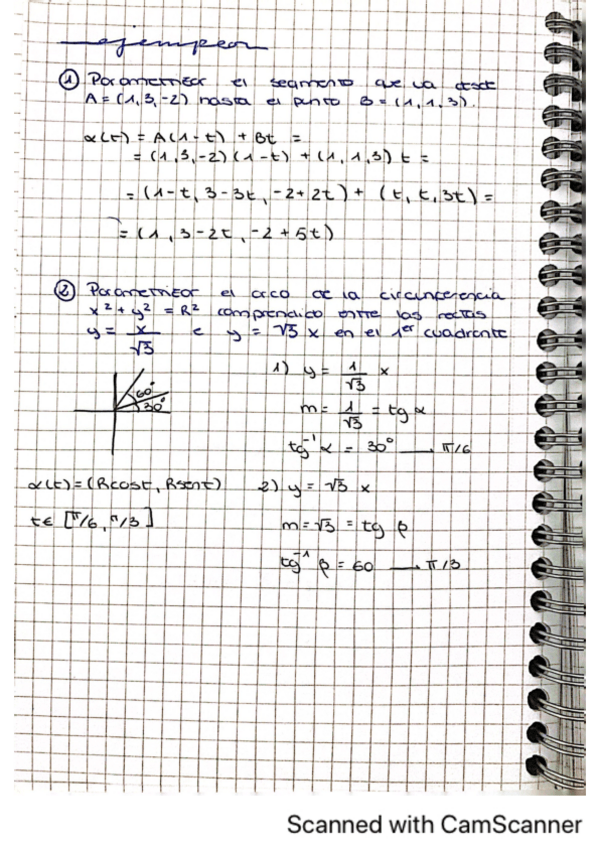 ejemplos
① Parametrizar el segmento que va desde
A = (1, 3, -2) hasta el punto B = (1, 1, 3).
α(t) = A(1-t) + Bt =
= (1, 3, -2) (1-t) + (1, 1, 3) t =
= (1-t, 3-3t, -2+2t) + (t, t, 3t) =
= (1, 3-2t, -2+5t)
② Parametrizar el arco de la circunferencia
x² + y² = R² comprendido entre las rectas
y = x/√3 e y = √3 x en el 1er cuadrante
60°
30°
α(t) = (Rcost, Rsent)
t ∈ [π/6, π/3]
1) y = 1/√3 x
m = 1/√3 = tg α
tg⁻¹ α = 30° — π/6
2) y = √3 x
m = √3 = tg β
tg⁻¹ β = 60 — π/3
Scanned with CamScanner